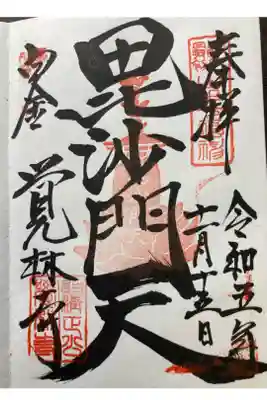 奉拝
令和五年
十一月十五日
毘沙門天
白金
覚林寺